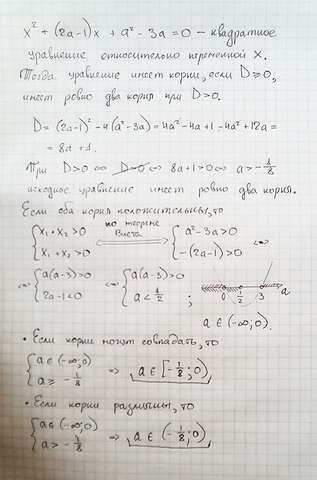 x² + (2a-1)x + a² - 3a = 0 – квадратное
уравнение относительно переменной x.
Тогда уравнение имеет корни, если D ≥ 0,
имеет ровно два корня при D > 0.
D = (2a-1)² - 4(a² - 3a) = 4a² - 4a + 1 - 4a² + 12a =
= 8a + 1.
При D > 0 ⇔ D > 0 ⇔ 8a + 1 > 0 ⇔ a > -1/8
исходное уравнение имеет ровно два корня.
Если оба корня положительны, то
{ x₁ · x₂ > 0 по теореме Виета ⟺ { a² - 3a > 0
{ x₁ + x₂ > 0 { -(2a-1) > 0 ⇔
⇔ { a(a-3) > 0 ⇔ { a(a-3) > 0
{ 2a - 1 < 0 { a < 1/2 ; 0 1/2 3 a
a ∈ (-∞; 0).
• Если корни могут совпадать, то
{ a ∈ (-∞; 0)
{ a ≥ -1/8 ⇒ a ∈ [-1/8; 0)
• Если корни различны, то
{ a ∈ (-∞; 0)
{ a > -1/8 ⇒ a ∈ (-1/8; 0)